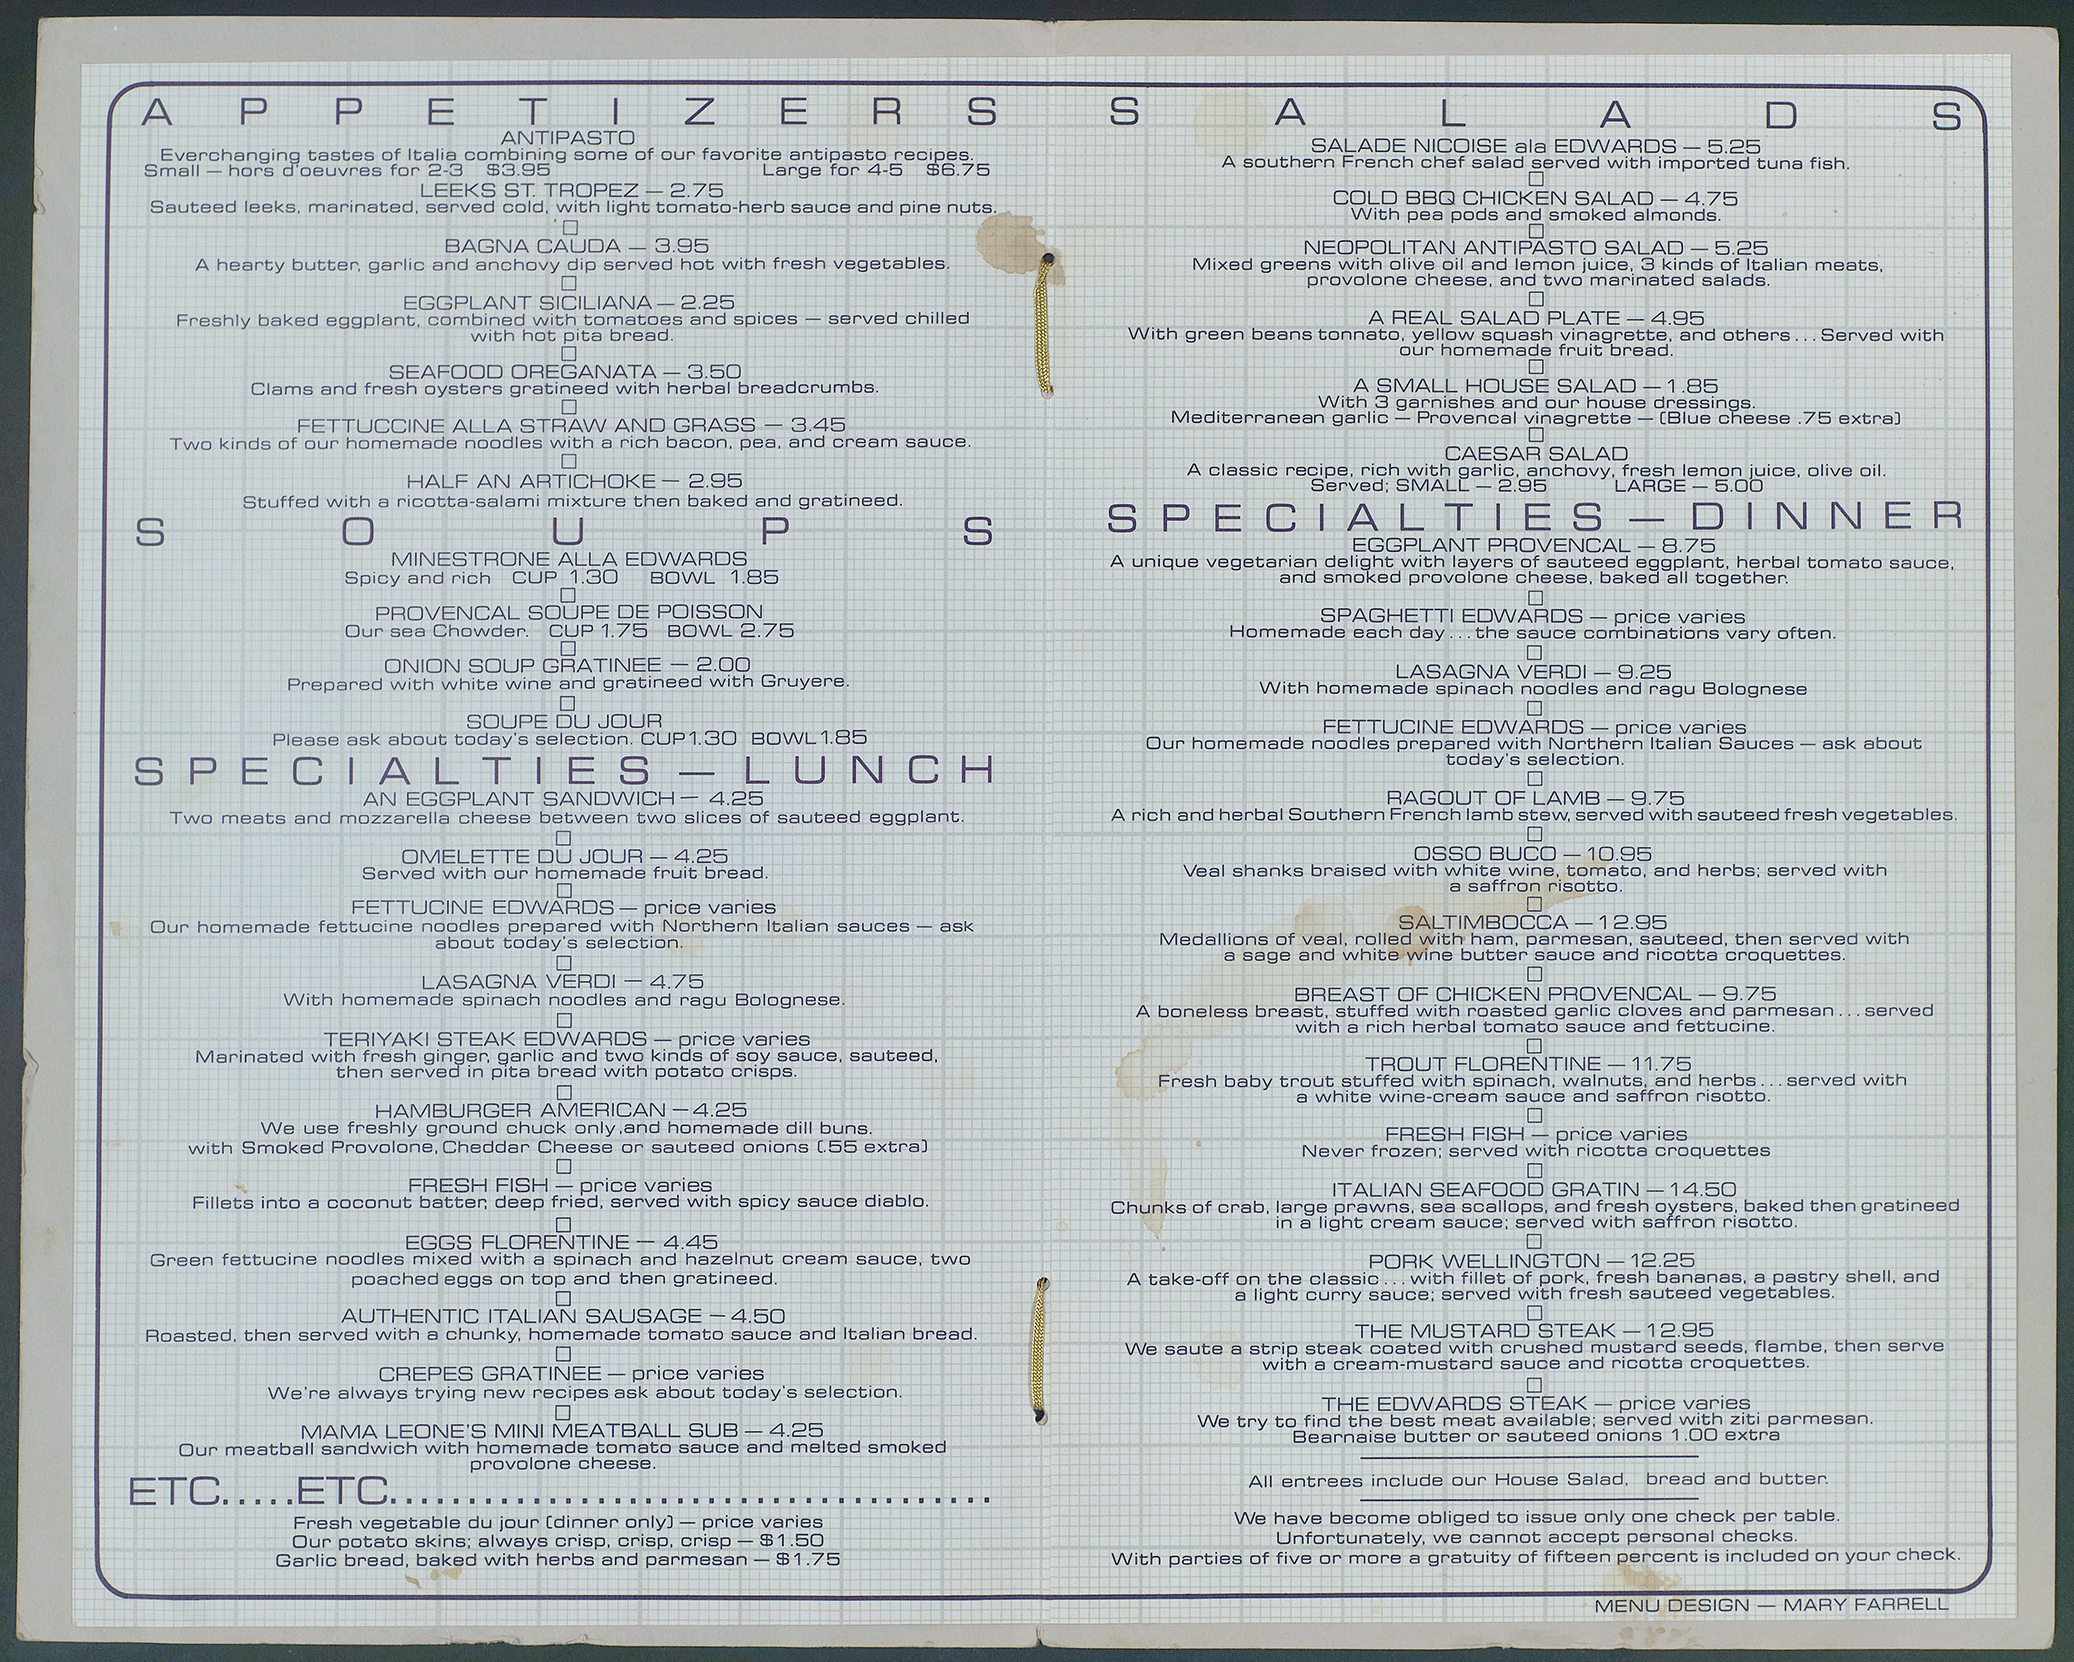 APPETIZERS
ANTIPASTO
Everchanging tastes of Italia combining some of our favorite antipasto recipes.
Small — hors d'oeuvres for 2-3 $3.95 Large for 4-5 $6.75
LEEKS ST. TROPEZ — 2.75
Sauteed leeks, marinated, served cold, with light tomato-herb sauce and pine nuts.
BAGNA CAUDA — 3.95
A hearty butter, garlic and anchovy dip served hot with fresh vegetables.
EGGPLANT SICILIANA — 2.25
Freshly baked eggplant, combined with tomatoes and spices — served chilled
with hot pita bread.
SEAFOOD OREGANATA — 3.50
Clams and fresh oysters gratineed with herbal breadcrumbs.
FETTUCCINE ALLA STRAW AND GRASS — 3.45
Two kinds of our homemade noodles with a rich bacon, pea, and cream sauce.
HALF AN ARTICHOKE — 2.95
Stuffed with a ricotta-salami mixture then baked and gratineed.
SOUPS
MINESTRONE ALLA EDWARDS
Spicy and rich CUP 1.30 BOWL 1.85
PROVENCAL SOUPE DE POISSON
Our sea Chowder. CUP 1.75 BOWL 2.75
ONION SOUP GRATINEE — 2.00
Prepared with white wine and gratineed with Gruyere.
SOUPE DU JOUR
Please ask about today's selection. CUP 1.30 BOWL 1.85
SPECIALTIES — LUNCH
AN EGGPLANT SANDWICH — 4.25
Two meats and mozzarella cheese between two slices of sauteed eggplant.
OMELETTE DU JOUR — 4.25
Served with our homemade fruit bread.
FETTUCINE EDWARDS — price varies
Our homemade fettucine noodles prepared with Northern Italian sauces — ask
about today's selection.
LASAGNA VERDI — 4.75
With homemade spinach noodles and ragu Bolognese.
TERIYAKI STEAK EDWARDS — price varies
Marinated with fresh ginger, garlic and two kinds of soy sauce, sauteed,
then served in pita bread with potato crisps.
HAMBURGER AMERICAN — 4.25
We use freshly ground chuck only, and homemade dill buns.
with Smoked Provolone, Cheddar Cheese or sauteed onions (.55 extra)
FRESH FISH — price varies
Fillets into a coconut batter, deep fried, served with spicy sauce diablo.
EGGS FLORENTINE — 4.45
Green fettucine noodles mixed with a spinach and hazelnut cream sauce, two
poached eggs on top and then gratineed.
AUTHENTIC ITALIAN SAUSAGE — 4.50
Roasted, then served with a chunky, homemade tomato sauce and Italian bread.
CREPES GRATINEE — price varies
We're always trying new recipes ask about today's selection.
MAMA LEONE'S MINI MEATBALL SUB — 4.25
Our meatball sandwich with homemade tomato sauce and melted smoked
provolone cheese.
ETC.....ETC......................................
Fresh vegetable du jour (dinner only) — price varies
Our potato skins; always crisp, crisp, crisp — $1.50
Garlic bread, baked with herbs and parmesan — $1.75
SALADS
SALADE NICOISE ala EDWARDS — 5.25
A southern French chef salad served with imported tuna fish.
COLD BBQ CHICKEN SALAD — 4.75
With pea pods and smoked almonds.
NEOPOLITAN ANTIPASTO SALAD — 5.25
Mixed greens with olive oil and lemon juice, 3 kinds of Italian meats,
provolone cheese, and two marinated salads.
A REAL SALAD PLATE — 4.95
With green beans tonnato, yellow squash vinagrette, and others . . . Served with
our homemade fruit bread.
A SMALL HOUSE SALAD — 1.85
With 3 garnishes and our house dressings.
Mediterranean garlic — Provencal vinagrette — (Blue cheese .75 extra)
CAESAR SALAD
A classic recipe, rich with garlic, anchovy, fresh lemon juice, olive oil.
Served; SMALL — 2.95 LARGE — 5.00
SPECIALTIES — DINNER
EGGPLANT PROVENCAL — 8.75
A unique vegetarian delight with layers of sauteed eggplant, herbal tomato sauce,
and smoked provolone cheese, baked all together.
SPAGHETTI EDWARDS — price varies
Homemade each day . . . the sauce combinations vary often.
LASAGNA VERDI — 9.25
With homemade spinach noodles and ragu Bolognese
FETTUCINE EDWARDS — price varies
Our homemade noodles prepared with Northern Italian Sauces — ask about
today's selection.
RAGOUT OF LAMB — 9.75
A rich and herbal Southern French lamb stew, served with sauteed fresh vegetables.
OSSO BUCO — 10.95
Veal shanks braised with white wine, tomato, and herbs; served with
a saffron risotto.
SALTIMBOCCA — 12.95
Medallions of veal, rolled with ham, parmesan, sauteed, then served with
a sage and white wine butter sauce and ricotta croquettes.
BREAST OF CHICKEN PROVENCAL — 9.75
A boneless breast, stuffed with roasted garlic cloves and parmesan . . . served
with a rich herbal tomato sauce and fettucine.
TROUT FLORENTINE — 11.75
Fresh baby trout stuffed with spinach, walnuts, and herbs . . . served with
a white wine-cream sauce and saffron risotto.
FRESH FISH — price varies
Never frozen; served with ricotta croquettes
ITALIAN SEAFOOD GRATIN — 14.50
Chunks of crab, large prawns, sea scallops, and fresh oysters, baked then gratineed
in a light cream sauce; served with saffron risotto.
PORK WELLINGTON — 12.25
A take-off on the classic . . . with fillet of pork, fresh bananas, a pastry shell, and
a light curry sauce; served with fresh sauteed vegetables.
THE MUSTARD STEAK — 12.95
We saute a strip steak coated with crushed mustard seeds, flambe, then serve
with a cream-mustard sauce and ricotta croquettes.
THE EDWARDS STEAK — price varies
We try to find the best meat available; served with ziti parmesan.
Bearnaise butter or sauteed onions 1.00 extra
All entrees include our House Salad, bread and butter.
We have become obliged to issue only one check per table.
Unfortunately, we cannot accept personal checks.
With parties of five or more a gratuity of fifteen percent is included on your check.
MENU DESIGN — MARY FARRELL